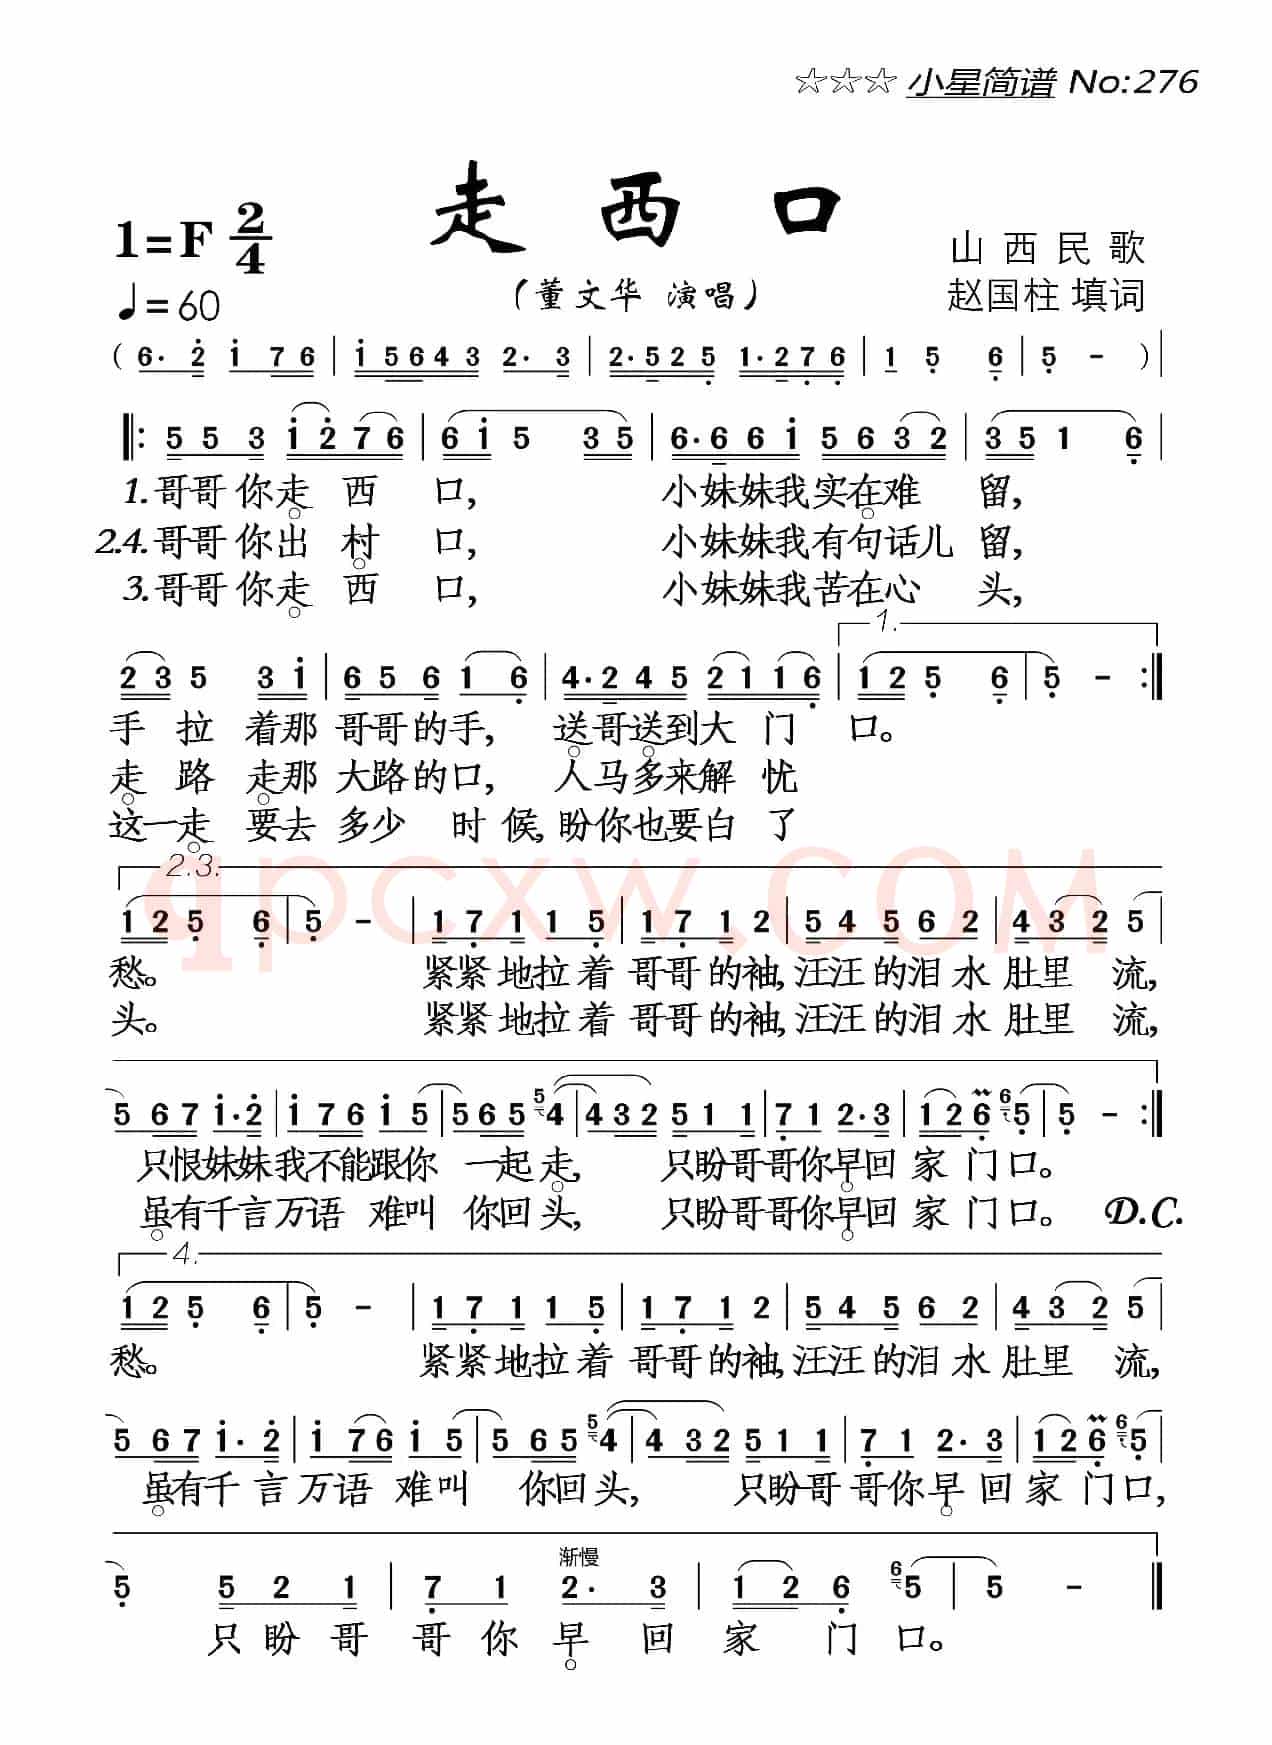 ☆☆☆ 小星简谱 No:276
走西口
1=F 2/4
山西民歌
(董文华 演唱)
赵国柱 填词
♩=60
( 6· 2 1 7 6 | 1 5 6 4 3 2· 3 | 2· 5 2 5 1· 2 7 6 | 1 5 6 | 5 - ) |
5 5 3 1 2 7 6 | 6 1 5 3 5 | 6· 6 6 1 5 6 3 2 | 3 5 1 6 |
1.哥哥你走西口, 小妹妹我实在难留,
2.4.哥哥你出村口, 小妹妹我有句话儿留,
3.哥哥你走西口, 小妹妹我苦在心头,
1.
2 3 5 3 1 | 6 5 6 1 6 | 4· 2 4 5 2 1 1 6 | 1 2 5 6 | 5 - :|
手拉着那哥哥的手, 送哥送到大门口。
走路走那大路的口, 人马多来解忧
这一走要去多少时候,盼你也要白了
2.3.
1 2 5 6 | 5 - | 1 7 1 1 5 | 1 7 1 2 | 5 4 5 6 2 | 4 3 2 5 |
愁。 紧紧地拉着哥哥的袖,汪汪的泪水肚里流,
头。 紧紧地拉着哥哥的袖,汪汪的泪水肚里流,
5 6 7 1· 2 | 1 7 6 1 5 | 5 6 5 5 4 | 4 3 2 5 1 1 | 7 1 2· 3 | 1 2 6 6 5 | 5 - :|
只恨妹妹我不能跟你一起走, 只盼哥哥你早回家门口。
虽有千言万语难叫你回头, 只盼哥哥你早回家门口。 D.C.
4.
1 2 5 6 | 5 - | 1 7 1 1 5 | 1 7 1 2 | 5 4 5 6 2 | 4 3 2 5 |
愁。 紧紧地拉着哥哥的袖,汪汪的泪水肚里流,
5 6 7 1· 2 | 1 7 6 1 5 | 5 6 5 5 4 | 4 3 2 5 1 1 | 7 1 2· 3 | 1 2 6 6 5 |
虽有千言万语难叫你回头, 只盼哥哥你早回家门口,
渐慢
5 5 2 1 | 7 1 2· 3 | 1 2 6 6 5 | 5 - ‖
只盼哥哥你早回家门口。
qpcxw.COM